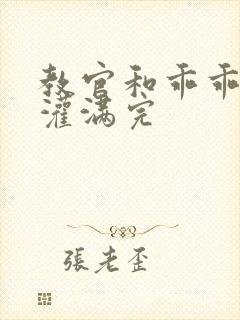 教官和乖乖
灌满完
張老歪